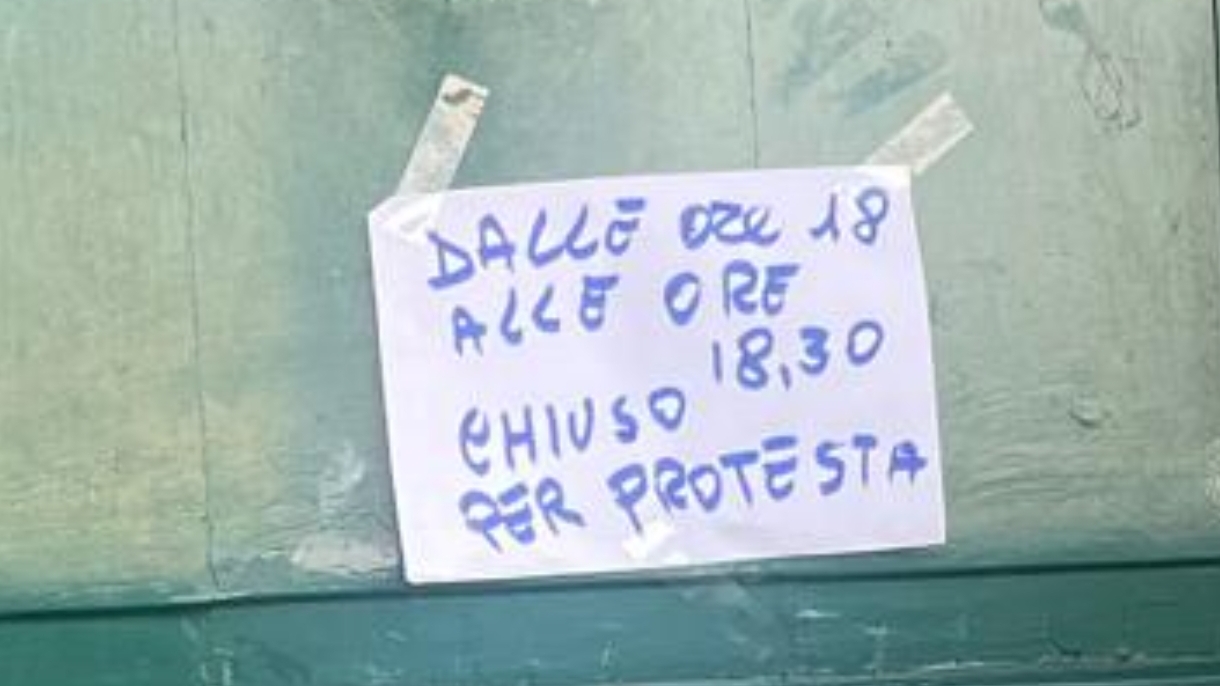 DALLE ORE 18
ALLE ORE
18,30
CHIUSO
PER PROTESTA